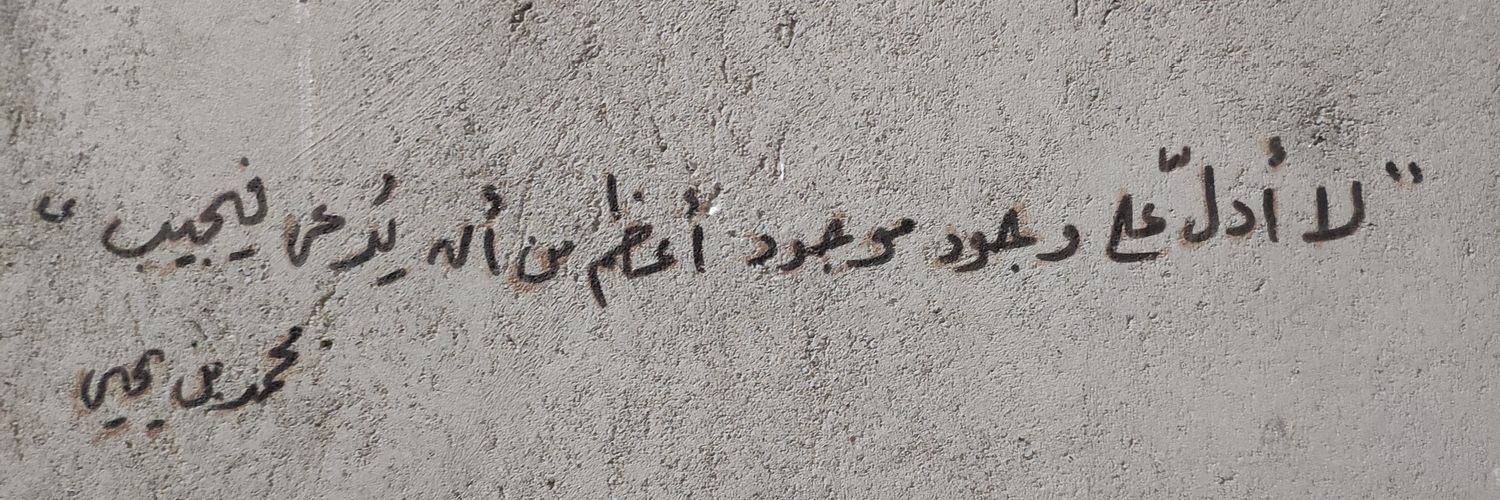 "لا أدلّ على وجود موجود أعظم من أن يُدعى فيجيب"
محمد بن يحيى